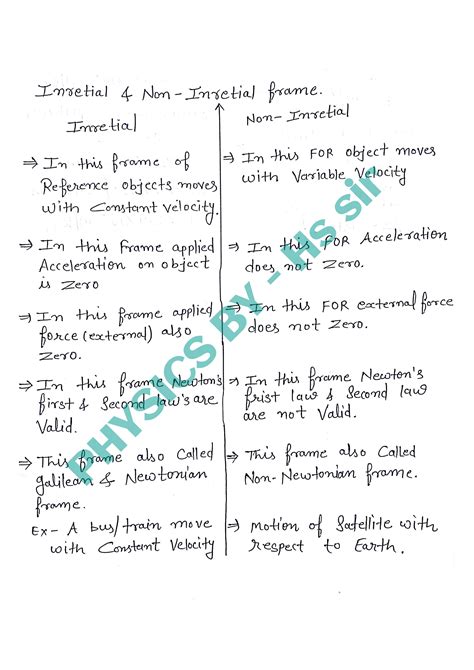 Inretial & Non-Inretial frame.
Inretial
⇒ In this frame of
Reference objects moves
with Constant velocity.
⇒ In this Frame applied
Acceleration on object
is zero
⇒ In this frame applied
force (external) also
Zero.
⇒ In this frame Newton's
first & Second law's are
Valid.
⇒ This frame also Called
galilean & Newtonian
frame.
Ex- A bus/train move
with Constant Velocity
Non-Inretial
⇒ In this FOR object moves
with Variable Velocity
⇒ In this FOR Acceleration
does not Zero.
⇒ In this FOR external force
does not Zero.
⇒ In this frame Newton's
frist law & Second law
are not Valid.
⇒ This frame also Called
Non-Newtonian frame.
⇒ motion of Satellite with
respect to Earth.
PHYSICS By - Hs sir